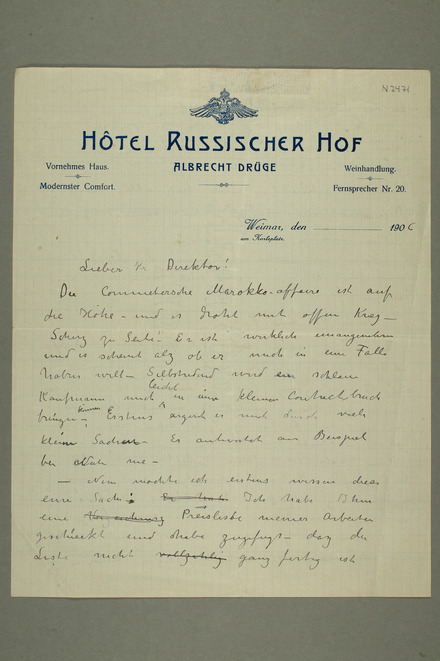 N 2471
HÔTEL RUSSISCHER HOF
ALBRECHT DRÜGE
Vornehmes Haus.
Modernster Comfort.
Weinhandlung.
Fernsprecher Nr. 20.
Weimar, den 1906
am Karlsplatz.
Lieber Hr Direktor!
Die Commetersche Marokko-affaire ist auf
die Höhe – und es droht mit offen Krieg –
Scherz zu Seite! Er ist wirklich unangenehm
und es scheint alz ob er mich in eine Falle
haben will – Selbstredend wird ein schlau
Kaufmann mich leicht in eine kleinen Contractbruch
bringen können – Erstens ärgert es mich durch viele
kleine Sachen – Er antwortet am Beispiel
bei nie –
– Nun möchte ich erstens wissen diese
eine Sache: Ich habe Ihm
eine Preisliste meiner Arbeiten
geschickt und habe zugefügt – daz die
Liste nicht vollzählig ganz fertig ist